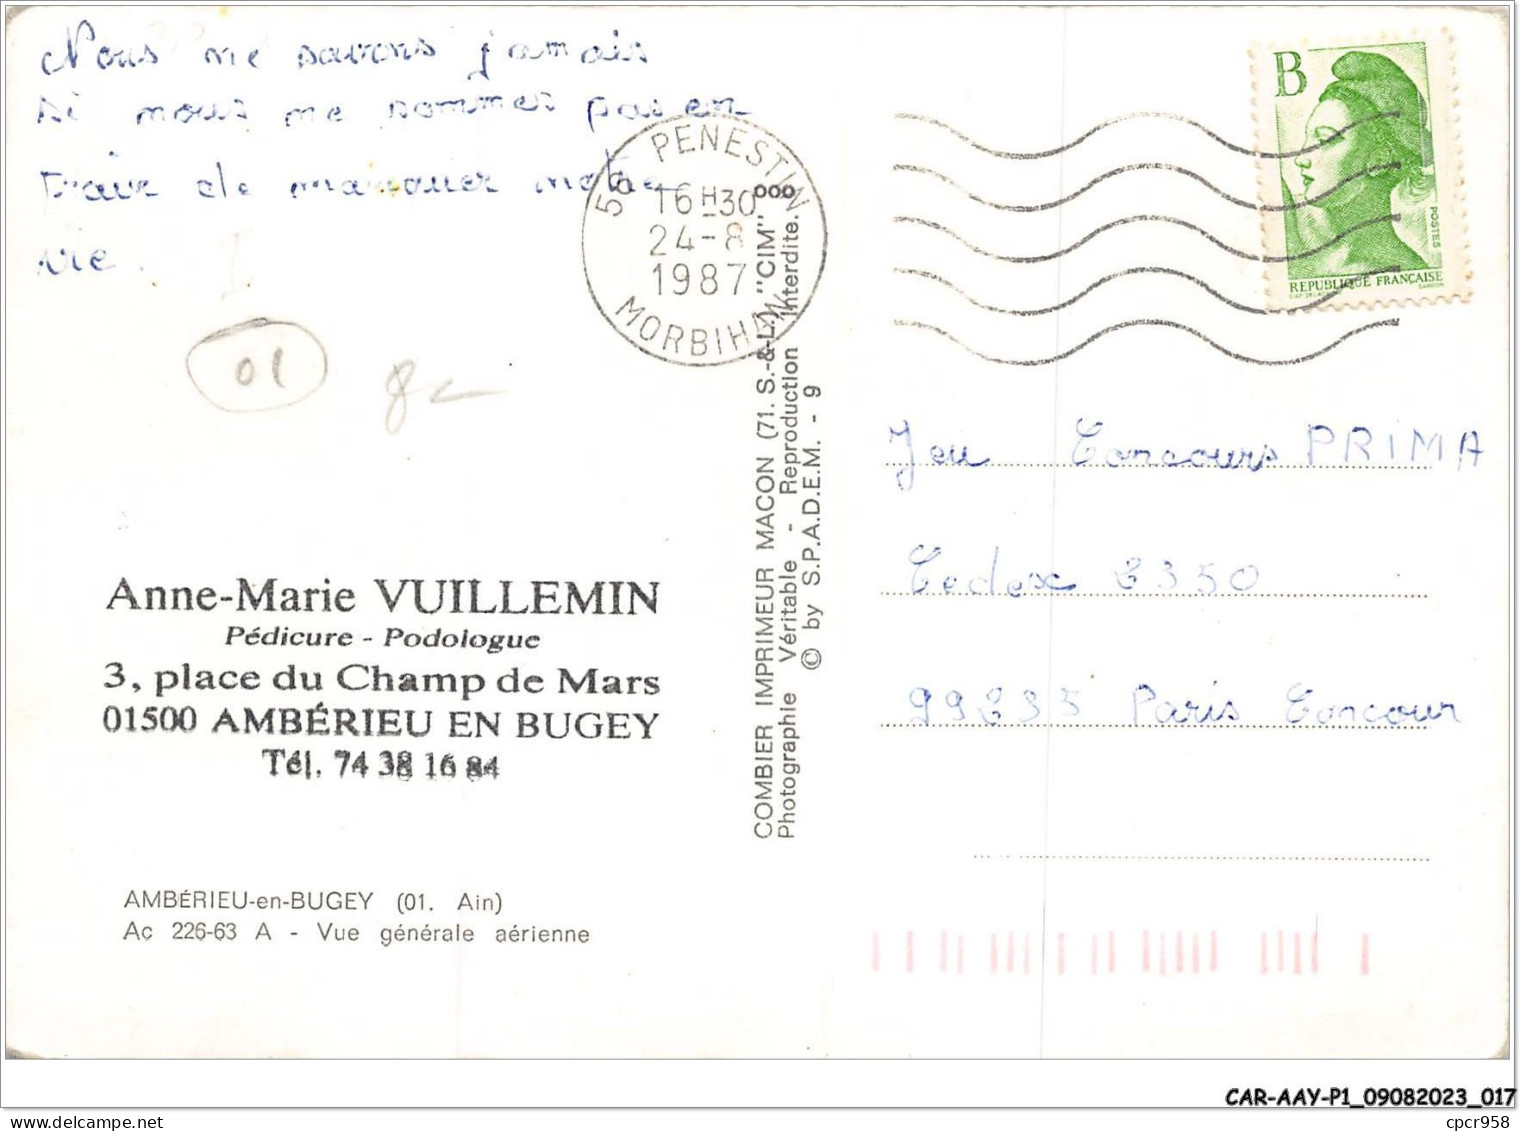 Nous ne savons jamais
si nous ne sommes pas en
train de manquer notre
vie.
01
56 PENESTIN
16H30
24-8
1987
MORBIHAN
B
POSTES
REPUBLIQUE FRANÇAISE
GANDON
Jeu Concours PRIMA
Cedex 2350
99235 Paris Concour
Anne-Marie VUILLEMIN
Pédicure - Podologue
3, place du Champ de Mars
01500 AMBÉRIEU EN BUGEY
Tél. 74 38 16 84
COMBIER IMPRIMEUR MACON (71. S.-&-L.) "CIM" ooo
Photographie Véritable - Reproduction Interdite.
© by S.P.A.D.E.M. - 9
AMBÉRIEU-en-BUGEY (01. Ain)
Ac 226-63 A - Vue générale aérienne
CAR-AAY-P1_09082023_017
cpcr958